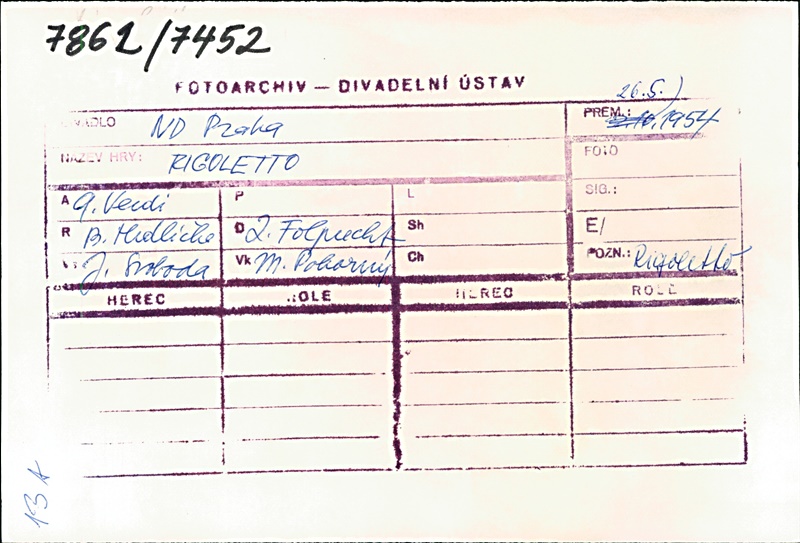 7861/7452
FOTOARCHIV — DIVADELNÍ ÚSTAV
DIVADLO ND Praha
PREM.: 26.5.) 1954
NÁZEV HRY: RIGOLETTO
FOTO
A G. Verdi P L
SIG.:
R B. Hrdlička D Z. Folprecht Sh
E/
J. Svoboda Vk M. Pokorný Ch
POZN.: Rigoletto
HEREC ROLE HEREC ROLE
13A